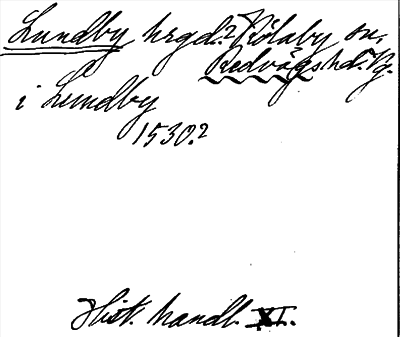 Lundby hrgd.? Kölaby sn,
Redvägs hd. Vg.
i Lundby
1530.?
Hist. handl. XI.